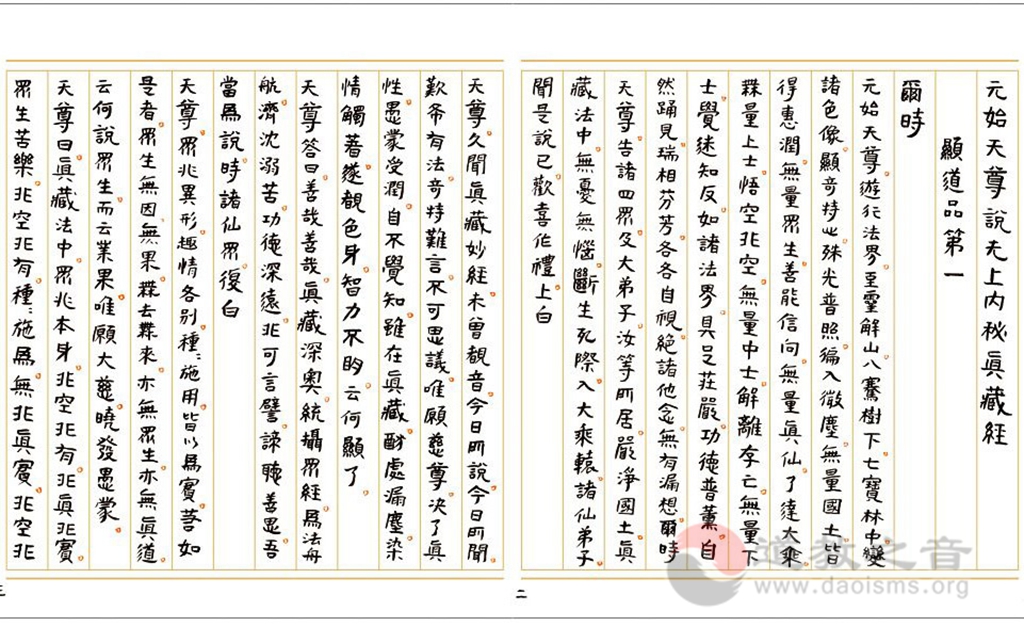 元始天尊說无上内秘眞藏經
顯道品第一
爾時
元始天尊遊行法界至靈解山八騫樹下七寶林中變
諸色像顯奇特心殊光普照徧入微塵無量國土皆
得惠潤無量眾生善能信向無量眞仙了達大乘
無量上士悟空非空無量中士解離存亡無量下
士覺迷知反如諸法界具足莊嚴功德普薰自
然踊見瑞相芬芳各各自視絕諸他念無有漏想爾時
天尊告諸四眾及大弟子汝等所居嚴淨國土眞
藏法中無憂無惱斷生死際入大乘轅諸仙弟子
聞是說已歡喜作禮上白
天尊久聞眞藏妙經未曾觀音今日所說今日所聞
歎希有法奇特難言不可思議唯願慈尊決了眞
性愚蒙受潤自不覺知雖在眞藏酎處漏塵染
情觸著遂觀色身智力不明云何顯了
天尊答曰善哉善哉眞藏深奧統攝眾經爲法舟
航濟沈溺苦功德深遠非可言譬諦聽善思吾
當爲說時諸仙眾復白
天尊眾兆異形趣情各別種〻施用皆以爲實若如
是者眾生無因無果無去無來亦無眾生亦無眞道
云何說眾生而云業果唯願大慈曉發愚蒙
天尊曰眞藏法中眾兆本身非空非有非眞非實
眾生苦樂非空非有種〻施爲無非眞實非空非
二
三
道教之音
www.daoisms.org